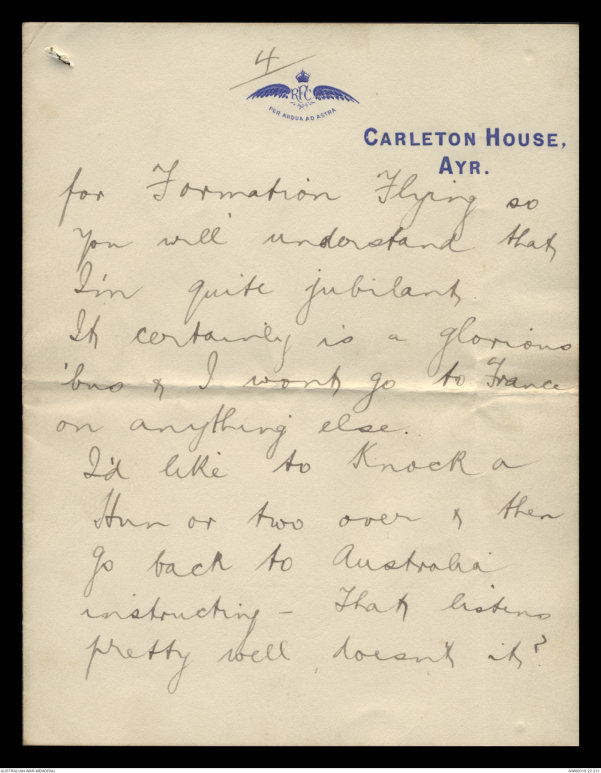 4
RFC
PER ARDUA AD ASTRA
CARLETON HOUSE,
AYR.
for Formation Flying so
you will understand that
I'm quite jubilant.
It certainly is a glorious
'bus & I wont go to France
on anything else.
I'd like to Knock a
Hun or two over & then
go back to Australia
instructing – That listens
pretty well, doesn't it?
AUSTRALIAN WAR MEMORIAL